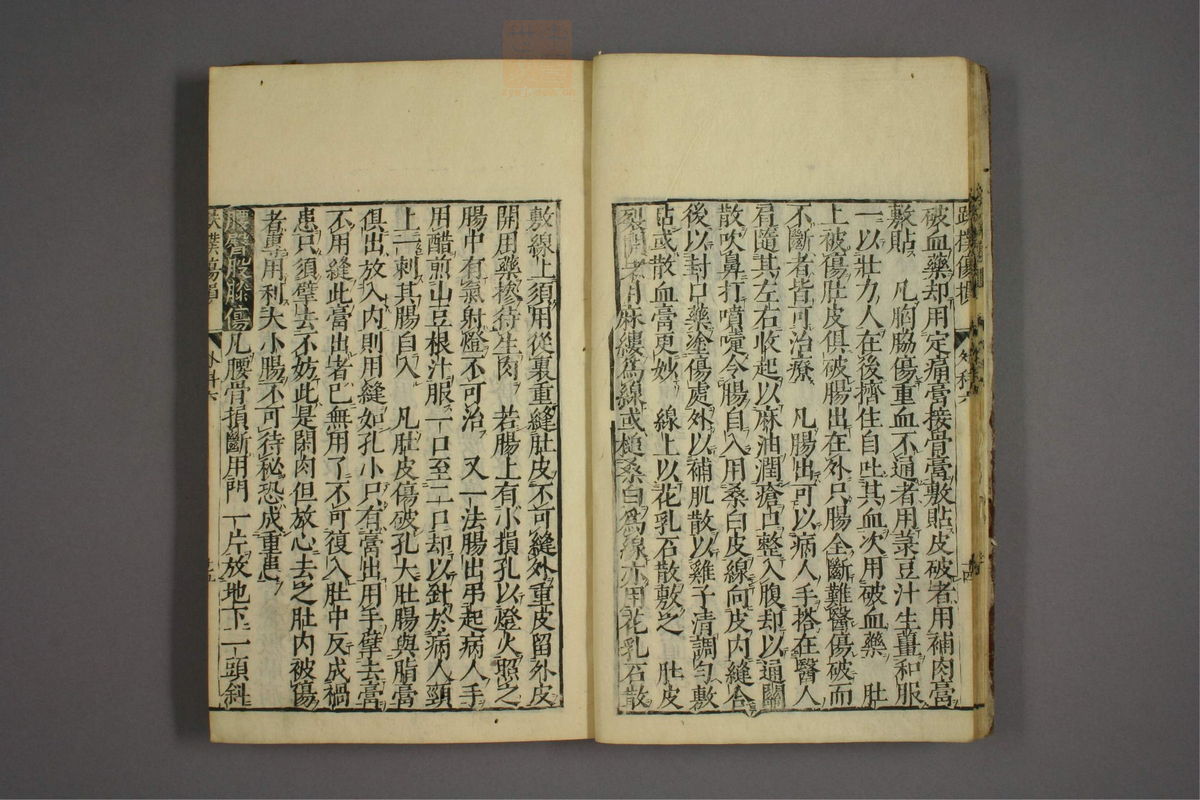 跌撲傷損 外科六 十四
破血藥却用定痛膏接骨膏敷貼皮破者用補肉膏
敷貼 凡胸脇傷重血不通者用菉豆汁生薑和服
一以壯力人在後擠住自吐其血次用破血藥 肚
上被傷肚皮俱破腸出在外只腸全斷難醫傷破而
不斷者皆可治療 凡腸出可以病人手搭在醫人
肩隨其左右收起以麻油潤瘡口整入腹却以通關
散吹鼻打噴嚏令腸自入用桑白皮線向皮內縫合
後以封口藥塗傷處外以補肌散以雞子清調勻敷
貼或散血膏更妙 線上以花乳石散敷之 肚皮
裂開者用麻縷為線或槌桑白為線亦用花乳石散
敷線上須用從裏重縫肚皮不可縫外重皮留外皮
開用藥摻待生肉 若腸上有小損孔以燈火照之
腸中有氣射燈不可治 又一法腸出吊起病人手
用醋煎山豆根汁服一口至二口却以針於病人頸
上一刺其腸自入 凡肚皮傷破孔大肚腸與脂膏
俱出放入內則用縫如孔小只有膏出用手擘去膏
不用縫此膏出者已無用了不可復入肚中反成禍
患只須擘去不妨此是閑肉但放心去之肚內被傷
者專用利大小腸不可待秘恐成重患
腰臀股膝傷凡腰骨損斷用門一片放地下一頭斜
跌撲傷損 外科六 十五